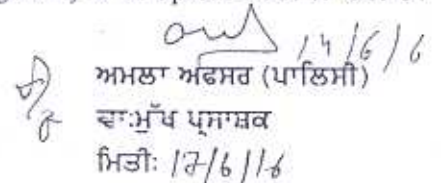 14/6/6
ਅਮਲਾ ਅਫਸਰ (ਪਾਲਿਸੀ)
ਵਾ:ਮੁੱਖ ਪ੍ਰਸਾਸ਼ਕ
ਮਿਤੀ: 17/6/16